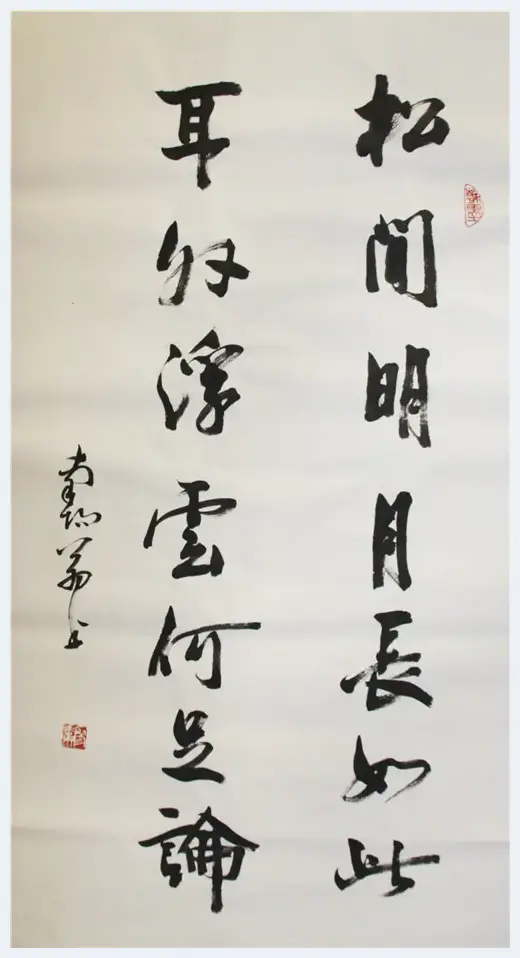 松間明月長如此
耳外浮雲何足論
翁书